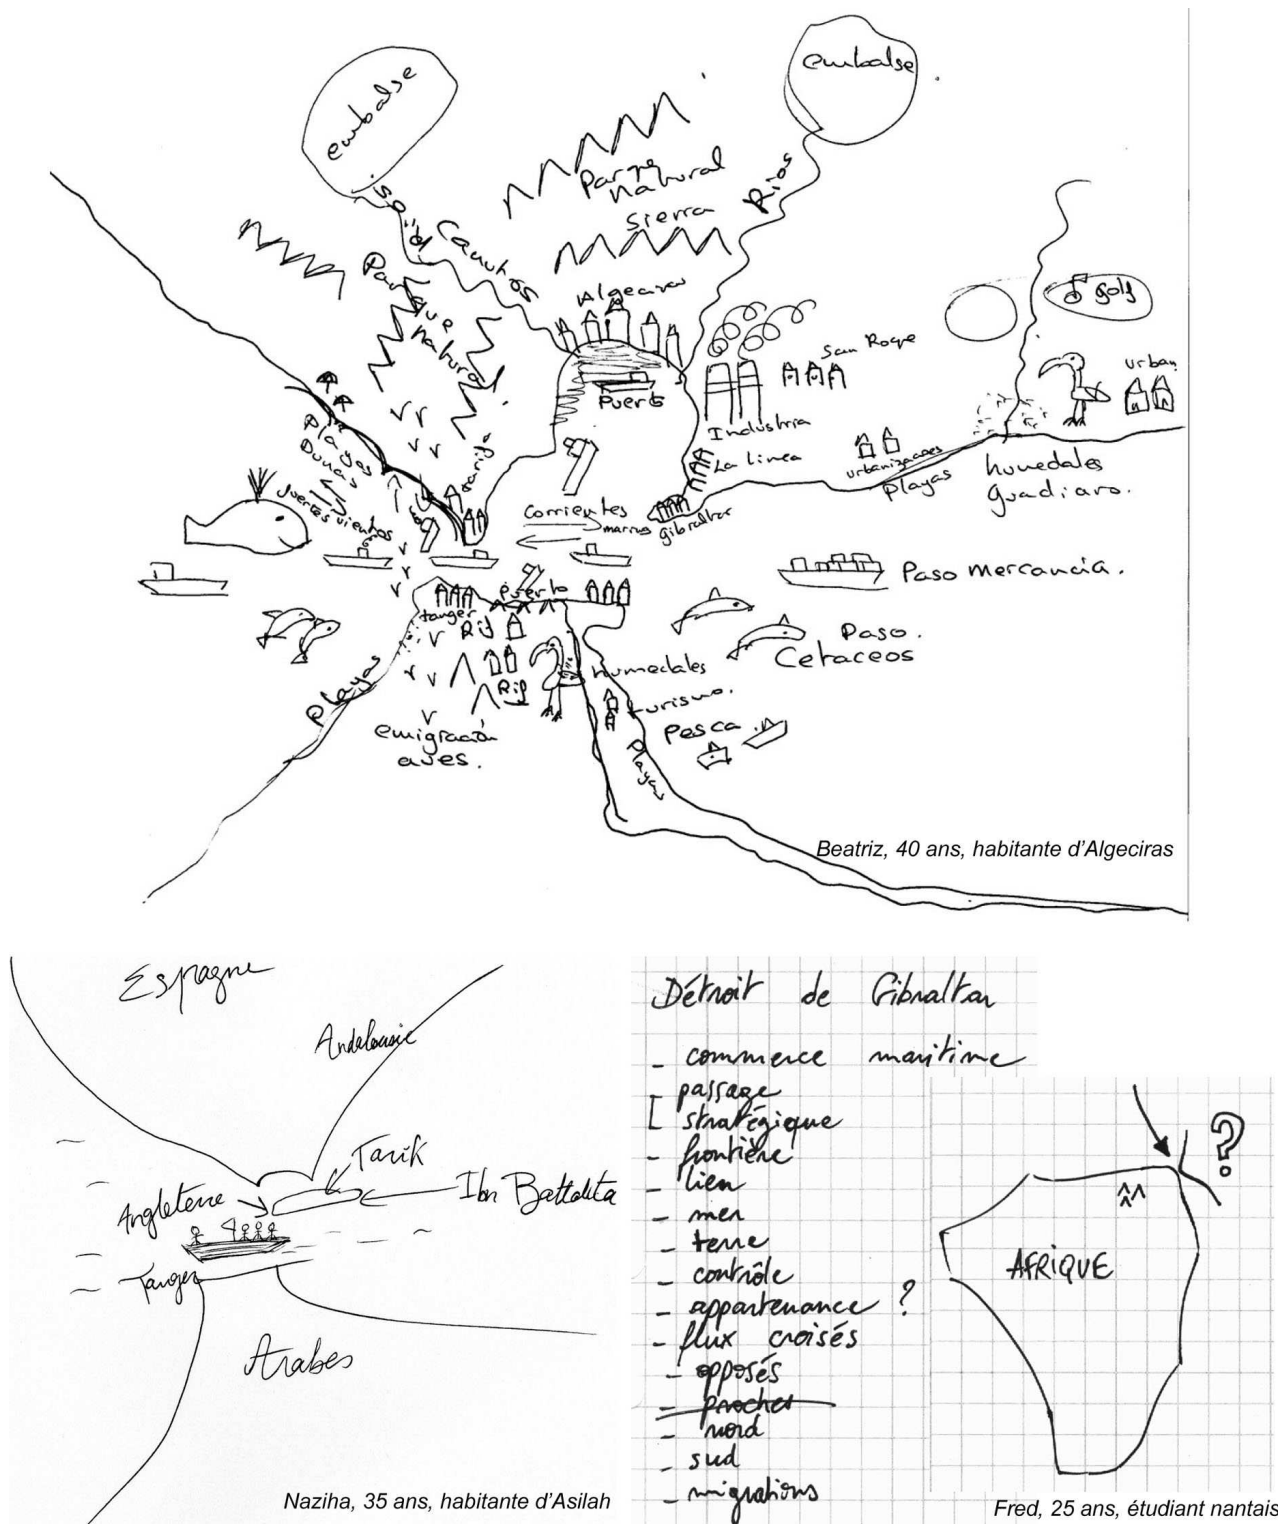 embalse
embalse
Parque
natural
Sierra
Ríos
Ríos
Canutos
Parque
natural
Algeciras
golf
San Roque
urban.
Puerto
Industria
La linea
urbanizaciones
Playas
humedales
Guadiaro.
Playas
Dunas
fuertes vientos
tarifa
Corrientes
marinas
Gibraltar
Paso Mercancia.
Puerto
tanger
Rif
Rif
Paso.
Cetaceos
humedales
turismo.
Pesca
Playas
Playas
emigración
aves.
Beatriz, 40 ans, habitante d'Algeciras
Espagne
Andalousie
Tarik
Ibn Battouta
Angleterre
Tanger
Arabes
Naziha, 35 ans, habitante d'Asilah
Détroit de Gibraltar
- commerce maritime
[ passage
stratégique
- frontière
- lien
- mer
- terre
- contrôle
- appartenance ?
- flux croisés
- opposés
- proches
- nord
- sud
- migrations
?
AFRIQUE
Fred, 25 ans, étudiant nantais